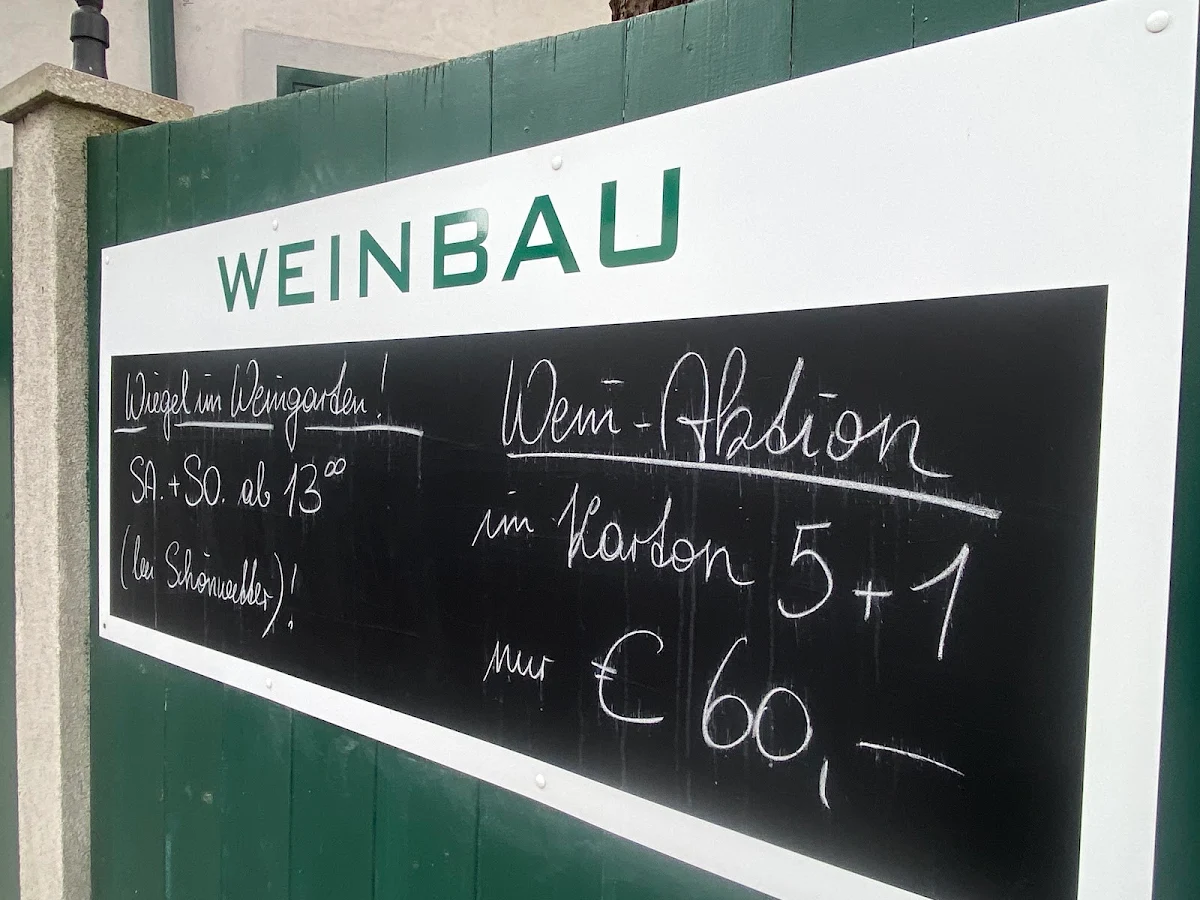 WEINBAU
Wiegel im Weingarten!
SA. + SO. ab 13⁰⁰
(bei Schönwetter)!
Wein-Aktion
im Karton 5+1
nur € 60,-